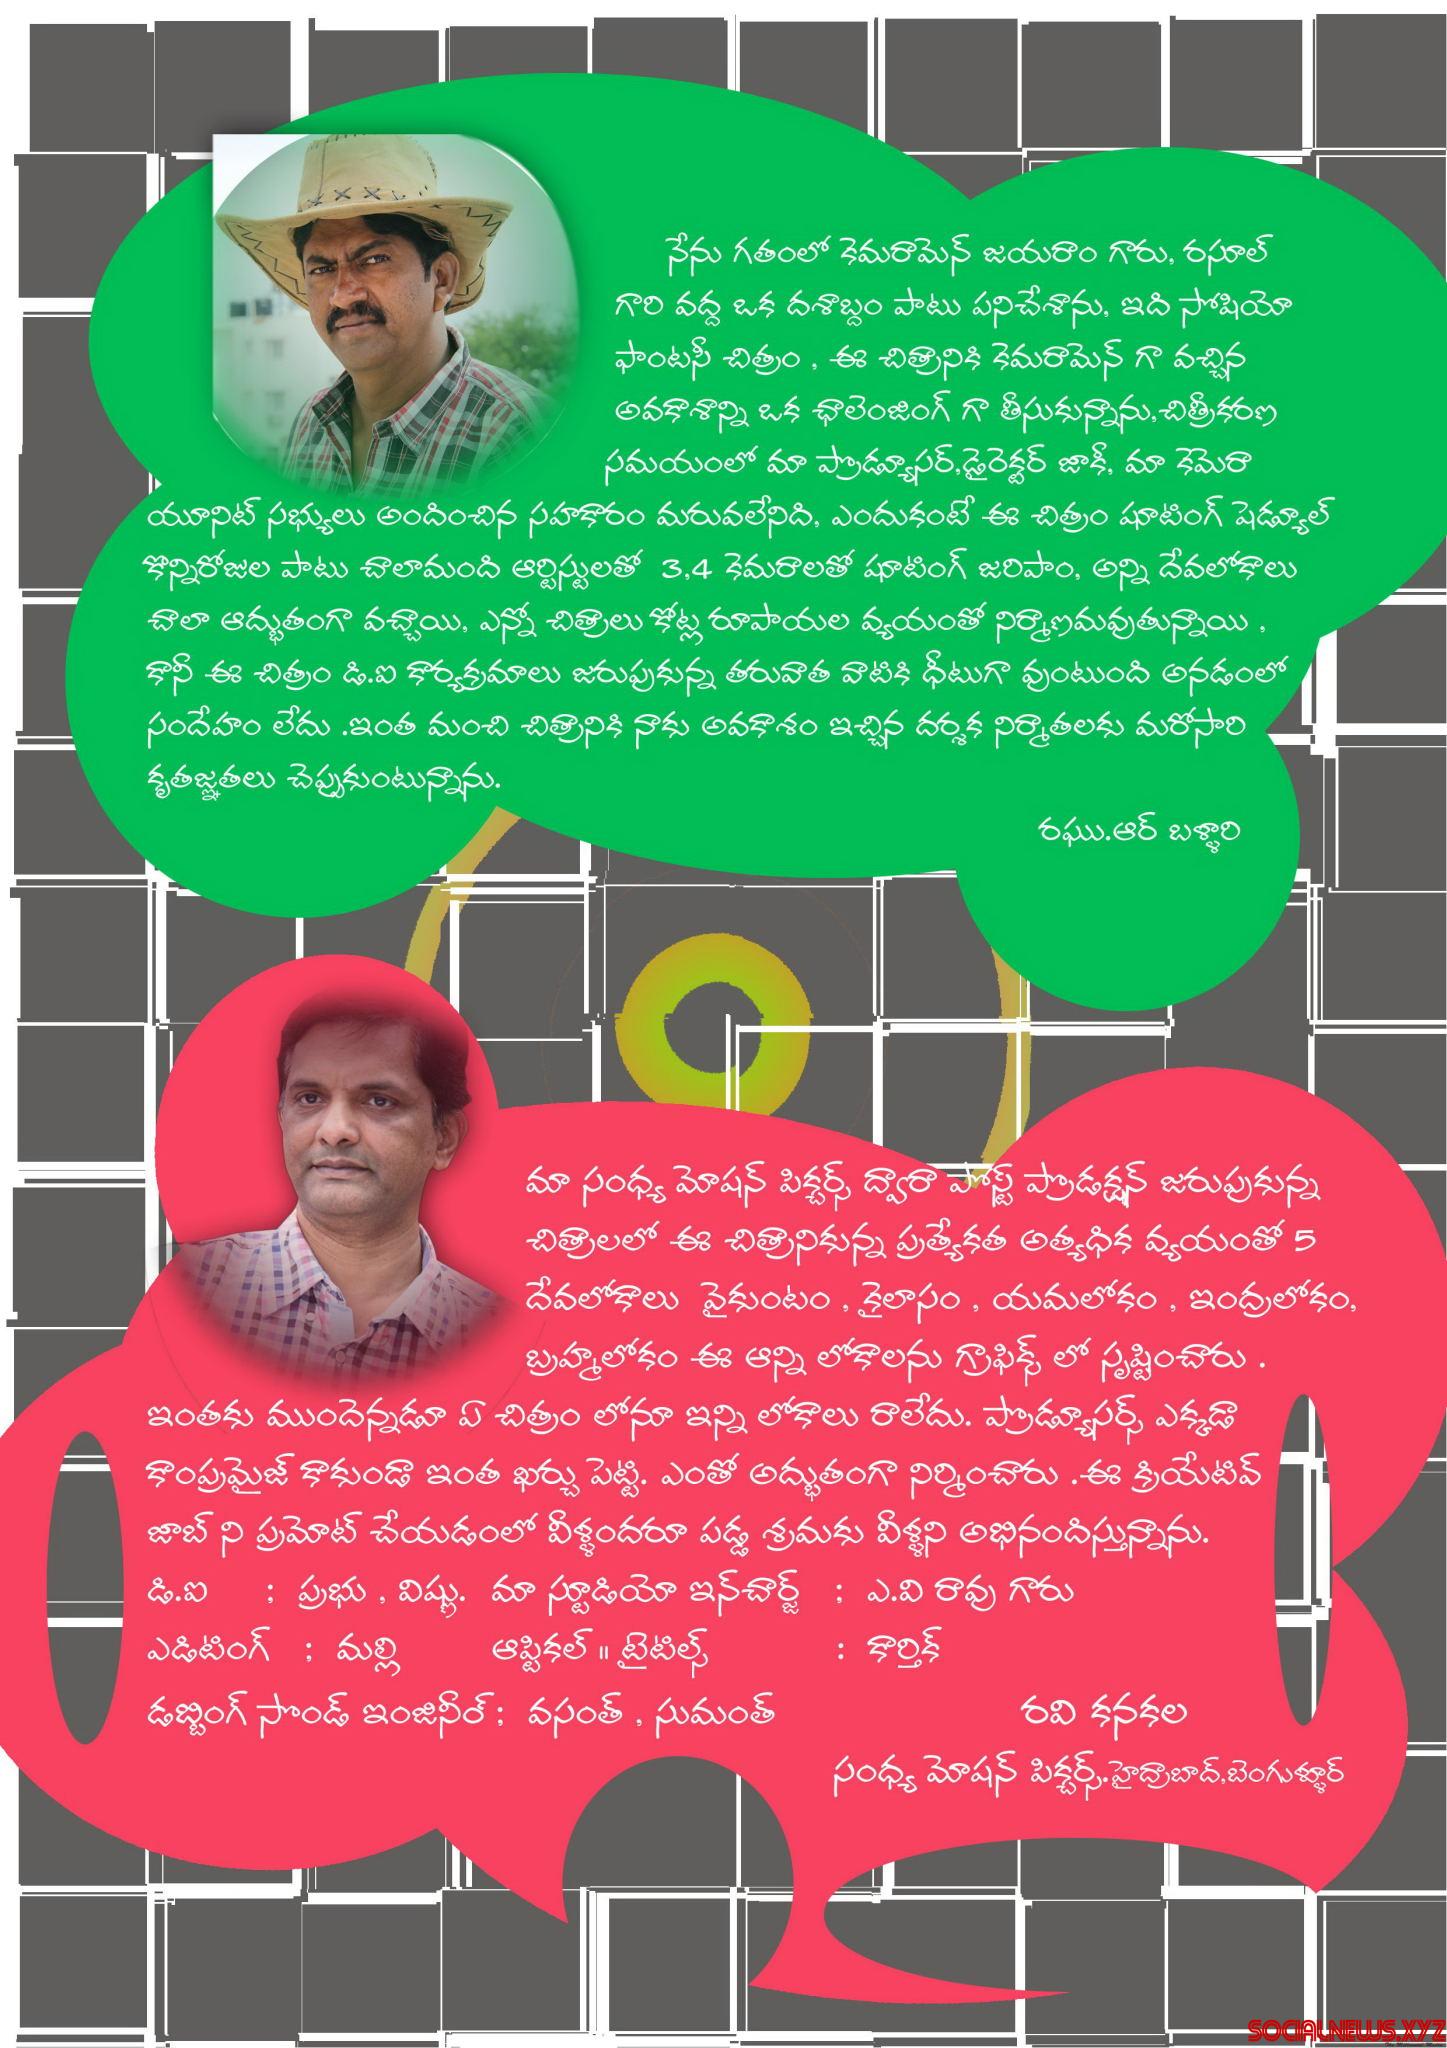 నేను గతంలో కెమరామెన్ జయరాం గారు, రసూల్
గారి వద్ద ఒక దశాబ్దం పాటు పనిచేశాను, ఇది సోషియో
ఫాంటసీ చిత్రం , ఈ చిత్రానికి కెమరామెన్ గా వచ్చిన
అవకాశాన్ని ఒక ఛాలెంజింగ్ గా తీసుకున్నాను,చిత్రీకరణ
సమయంలో మా ప్రొడ్యూసర్,డైరెక్టర్ జాకీ, మా కెమెరా
యూనిట్ సభ్యులు అందించిన సహకారం మరువలేనిది, ఎందుకంటే ఈ చిత్రం షూటింగ్ షెడ్యూల్
కొన్నిరోజుల పాటు చాలామంది ఆర్టిస్టులతో 3,4 కెమరాలతో షూటింగ్ జరిపాం, అన్ని దేవలోకాలు
చాలా ఆద్భుతంగా వచ్చాయి, ఎన్నో చిత్రాలు కోట్ల రూపాయల వ్యయంతో నిర్మాణమవుతున్నాయి ,
కానీ ఈ చిత్రం డి.ఐ కార్యక్రమాలు జరుపుకున్న తరువాత వాటికి ధీటుగా వుంటుంది అనడంలో
సందేహం లేదు .ఇంత మంచి చిత్రానికి నాకు అవకాశం ఇచ్చిన దర్శక నిర్మాతలకు మరోసారి
కృతజ్ఞతలు చెప్పుకుంటున్నాను.
రఘు.ఆర్ బళ్ళారి
మా సంధ్య మోషన్ పిక్చర్స్ ద్వారా పోస్ట్ ప్రొడక్షన్ జరుపుకున్న
చిత్రాలలో ఈ చిత్రానికున్న ప్రత్యేకత అత్యధిక వ్యయంతో 5
దేవలోకాలు వైకుంటం , కైలాసం , యమలోకం , ఇంద్రలోకం,
బ్రహ్మలోకం ఈ ఆన్ని లోకాలను గ్రాఫిక్స్ లో సృష్టించారు .
ఇంతకు ముందెన్నడూ ఏ చిత్రం లోనూ ఇన్ని లోకాలు రాలేదు. ప్రొడ్యూసర్స్ ఎక్కడా
కాంప్రమైజ్ కాకుండా ఇంత ఖర్చు పెట్టి. ఎంతో అద్భుతంగా నిర్మించారు .ఈ క్రియేటివ్
జాబ్ ని ప్రమోట్ చేయడంలో వీళ్ళందరూ పడ్డ శ్రమకు వీళ్ళని అభినందిస్తున్నాను.
డి.ఐ ; ప్రభు , విష్ణు. మా స్టూడియో ఇన్‌చార్జ్ ; ఎ.వి రావు గారు
ఎడిటింగ్ ; మల్లి ఆప్టికల్ ॥ టైటిల్స్ : కార్తిక్
డబ్బింగ్ సౌండ్ ఇంజినీర్ ; వసంత్ , సుమంత్ రవి కనకల
సంధ్య మోషన్ పిక్చర్స్.హైద్రాబాద్,బెంగుళ్ళూర్
SOCIALNEWS.XYZ